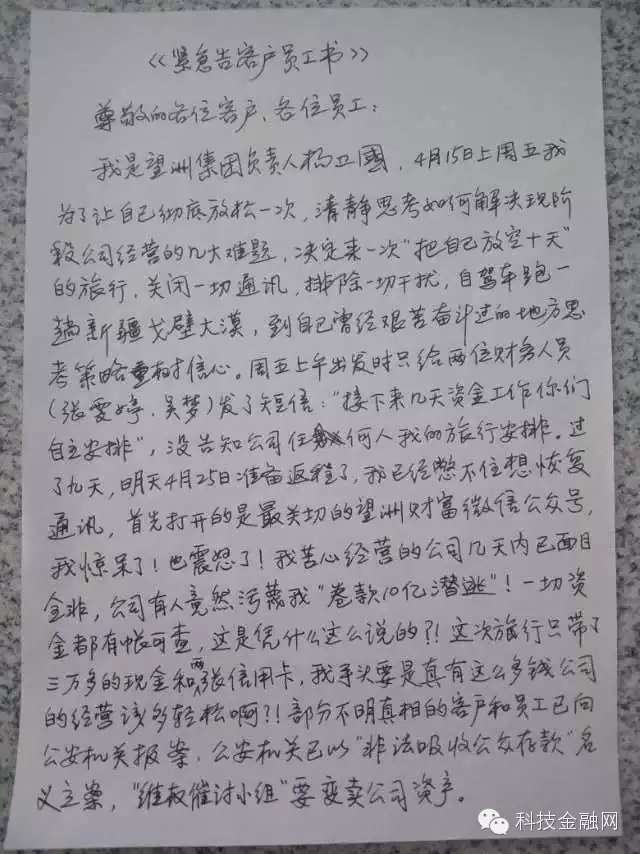 《紧急告客户员工书》
尊敬的各位客户、各位员工：
我是望洲集团负责人杨卫國，4月15日上周五我
为了让自己彻底放松一次，清静思考如何解决现阶
段公司经营的几大难题，决定来一次“把自己放空十天”
的旅行，关闭一切通讯，排除一切干扰，自驾车跑一
趟新疆戈壁大漠，到自己曾经艰苦奋斗过的地方思
考策略重树信心。周五上午出发时只给两位财务人员
(张雯婷、吴梦)发了短信：“接下来几天资金工作你们
自主安排”，没告知公司任何人我的旅行安排。过
了九天，明天4月25日准备返程了，我已经憋不住想恢复
通讯，首先打开的是最关切的望洲财富微信公众号，
我惊呆了！也震怒了！我苦心经营的公司几天内已面目
全非，公司有人竟然污蔑我“卷款10亿潜逃”！一切资
金都有帐可查，这是凭什么这么说的?！这次旅行只带了
三万多的现金和两张信用卡，我手头要是真有这么多钱公司
的经营该多轻松啊?！部分不明真相的客户和员工已向
公安机关报案，公安机关已以“非法吸收公众存款”名
义立案，“维权催讨小组”要变卖公司资产。
科技金融网